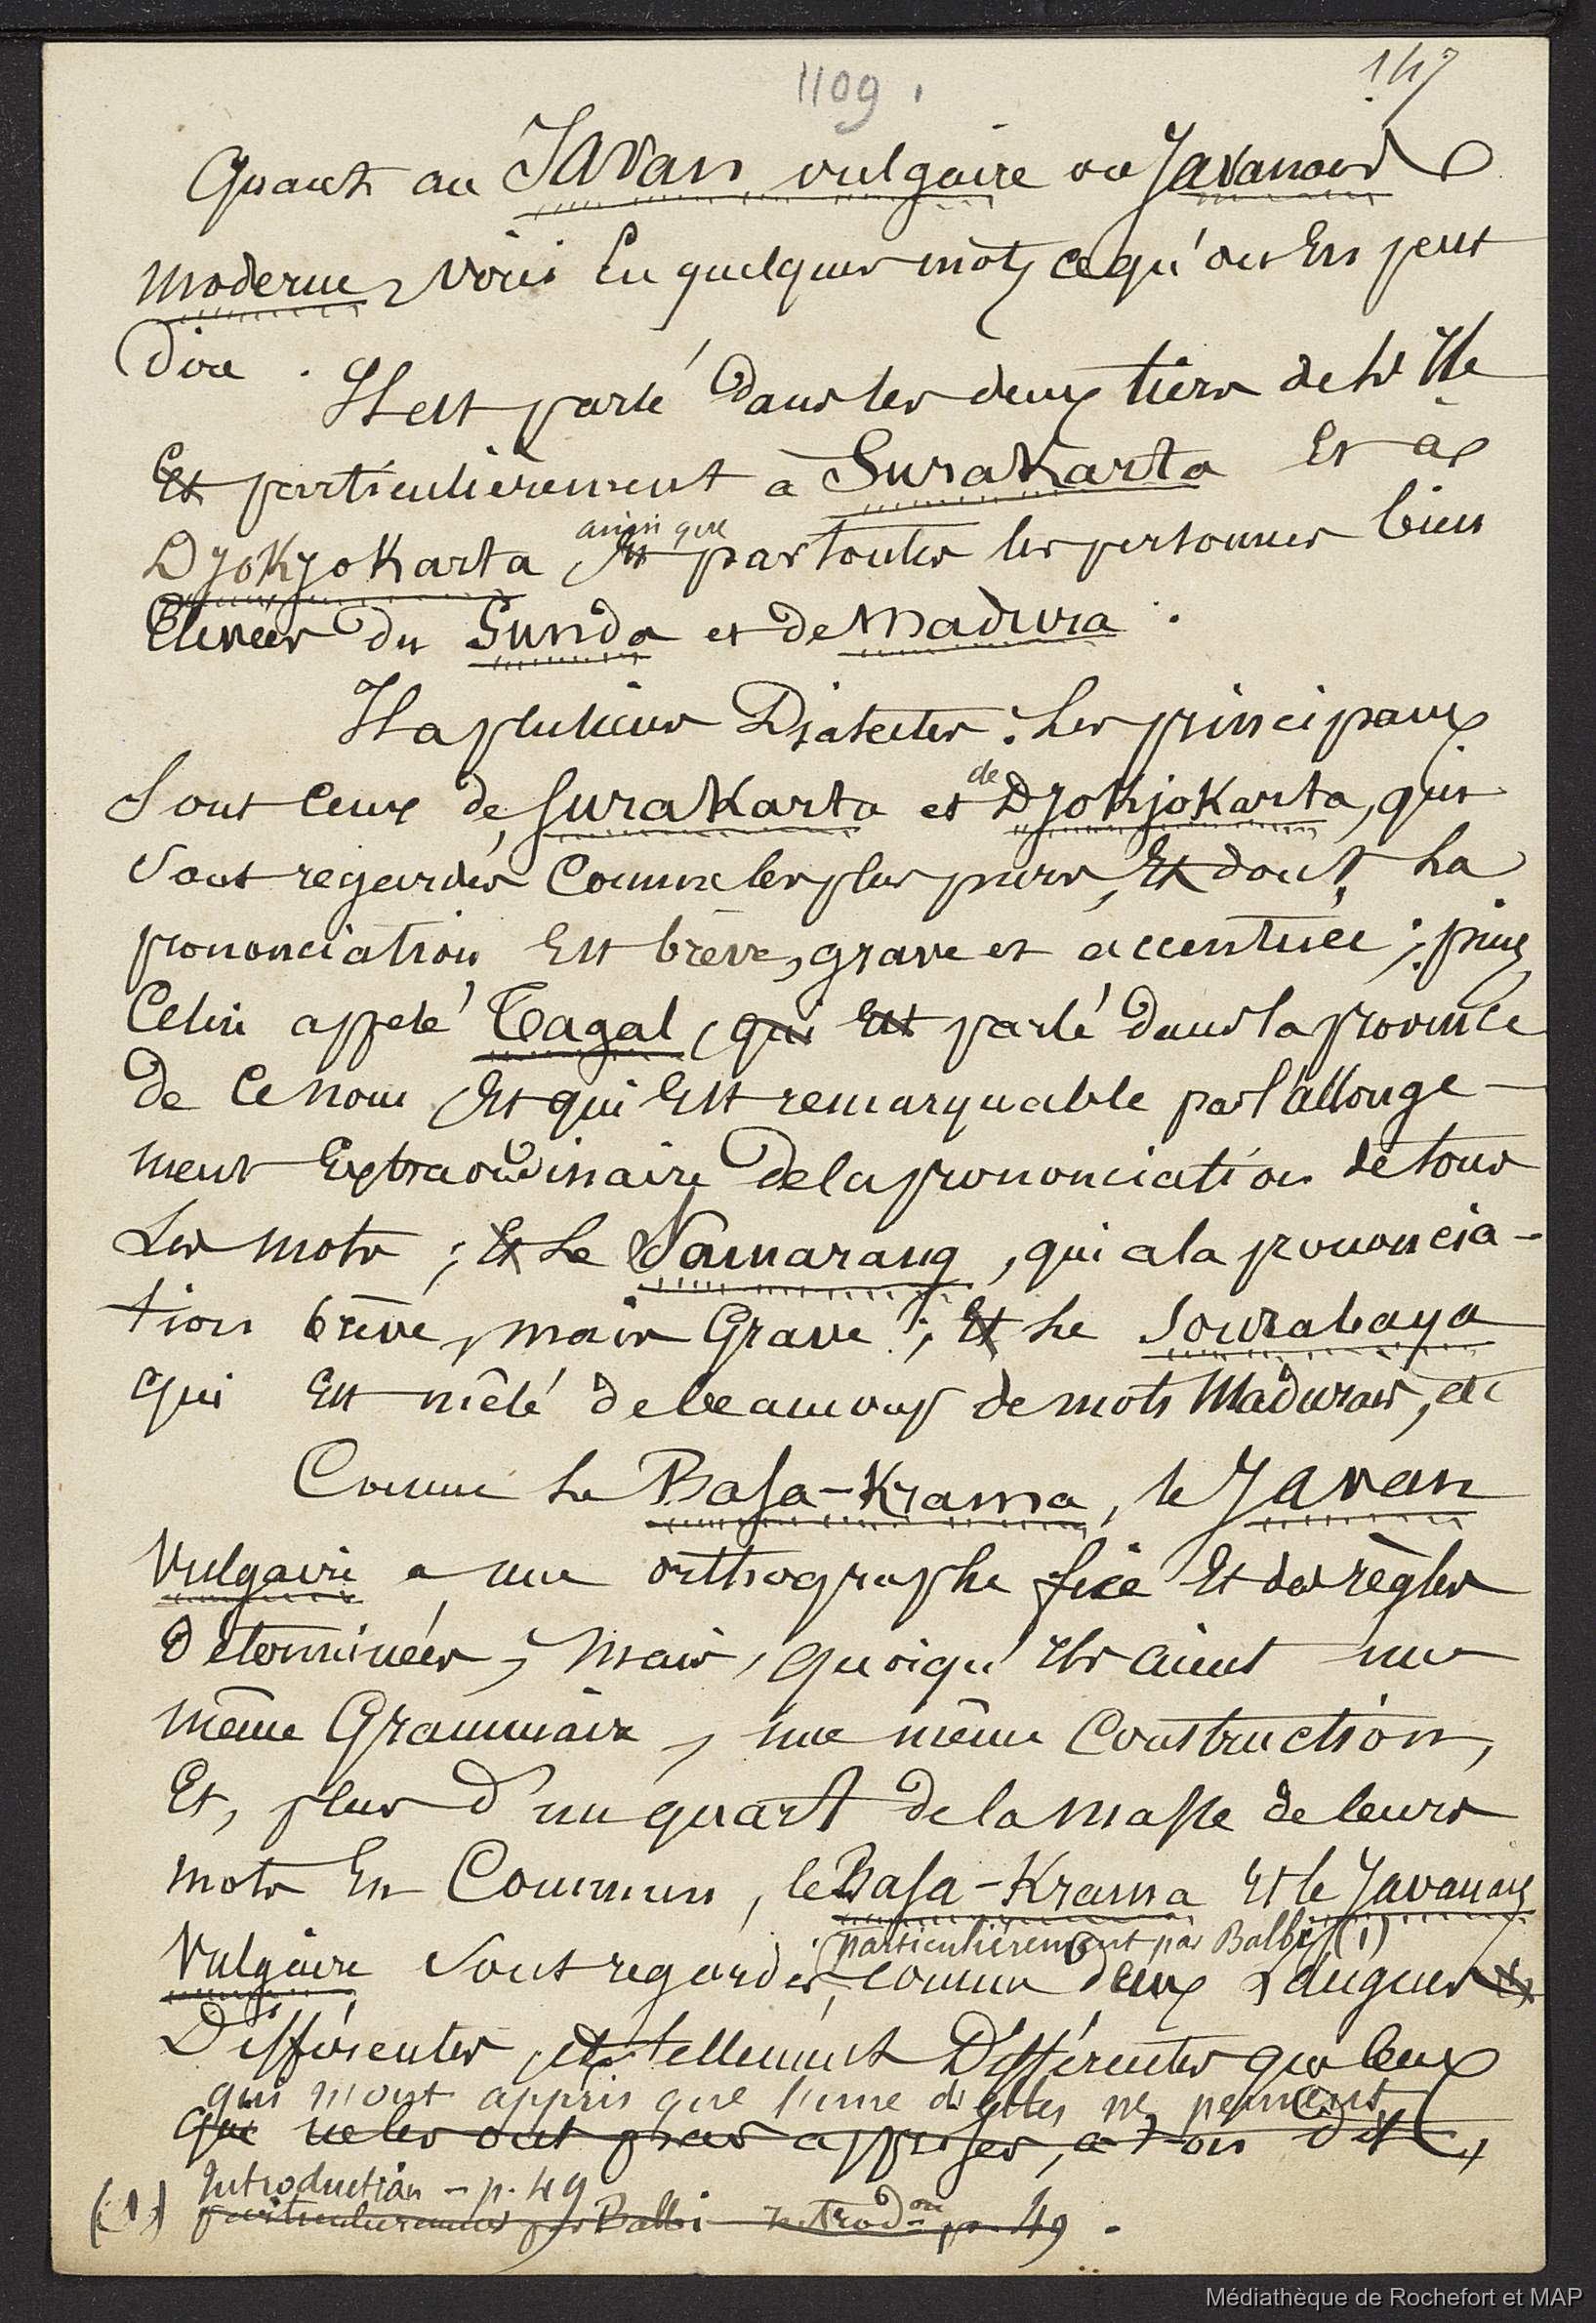 1109.
147
Quant au Javan vulgaire ou Javanais
moderne, voici en quelques mots ce qu'on en peut
dire.
Il est parlé dans les deux tiers de l'Ile
Et particulièrement à Surakarta et à
Djokjokarta ainsi que par toutes les personnes bien
Elevées du Sunda et de Madura.
Il a plusieurs Dialectes. Les principaux
Sont ceux de Surakarta et de Djokjokarta, qui
Sont regardés comme les plus purs, Et dont la
prononciation Est brève, grave et accentuée; puis
Celui appelé Tagal, qui Est parlé dans la province
de ce nom Et qui Est remarquable par l'allonge-
ment Extraordinaire de la prononciation de tous
Les mots; Et Le Samarang, qui a la prononcia-
tion brève, mais Grave; Et Le Sourabaya
qui Est mêlé de beaucoup de mots Madurais, etc
Comme Le Basa-Krama, le Javan
Vulgaire a une orthographe fixe Et des règles
Déterminées, Mais, quoiqu'Ils aient une
même Grammaire, une même Construction,
Et, plus d'un quart de la masse de leurs
mots En Commun, le Basa-Krama Et le Javanais
particulièrement par Balbi, (1)
Vulgaire Sont regardés, comme deux Langues
Différentes, et tellement Différentes que ceux
qui n'ont appris que l'une d'elles ne peuvent
que ne les ont pas apprises, a-t-on dit,
Introduction - p. 49
(1) particulièrement par Balbi Introd.on p. 49.
Médiathèque de Rochefort et MAP